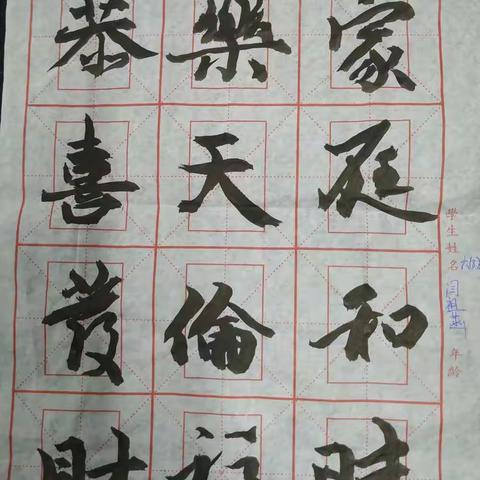 家庭和睦
樂天倫
恭喜發財
學生姓名
年齡